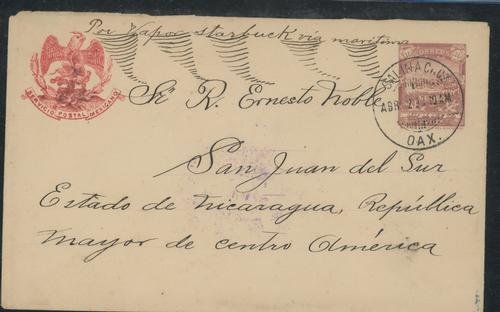 Por Vapor starbuck via maritima
SERVICIO POSTAL MEXICANO
CORREOS
SALINA CRUZ
ABR
10 AM
OAX.
Sr. R. Ernesto Noble
San Juan del Sur
Estado de Nicaragua, República
Mayor de centro América